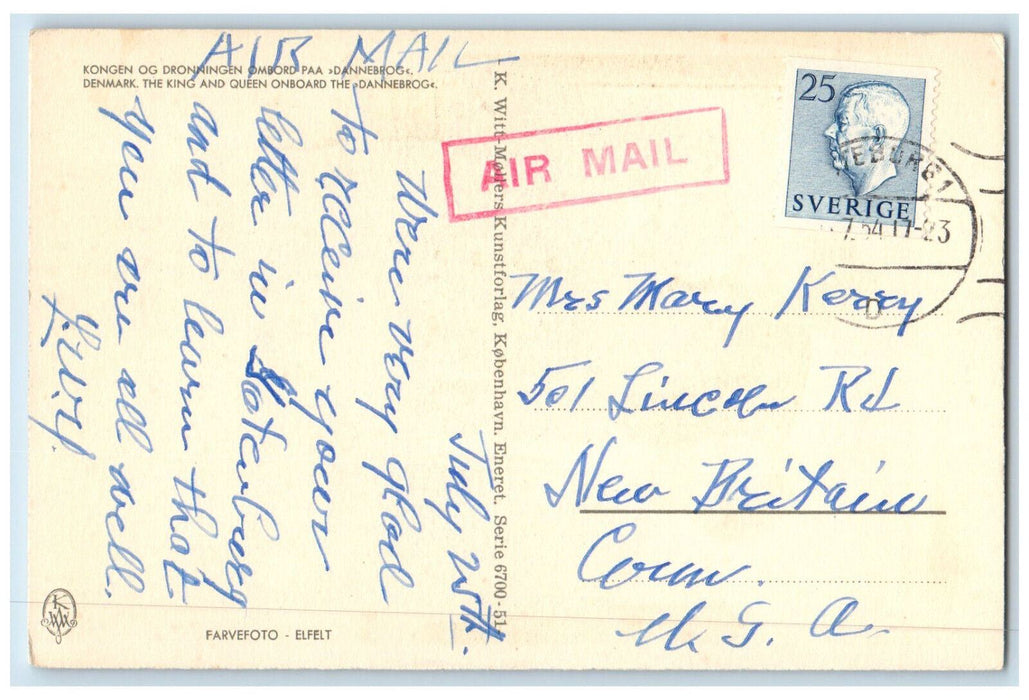 AIR MAIL
KONGEN OG DRONNINGEN OMBORD PAA »DANNEBROG«.
DENMARK. THE KING AND QUEEN ONBOARD THE »DANNEBROG«.
July
Were very glad
to receive your
letter in Goteborg
and to learn that
you are all well.
K. Witt-Møllers Kunstforlag, København. Eneret. Serie 6700-51
AIR MAIL
25
SVERIGE
7.54.17-23
D
Mrs Mary Kerry
501 Lincoln Rd
New Britain
Conn.
U. S. A.
FARVEFOTO - ELFELT